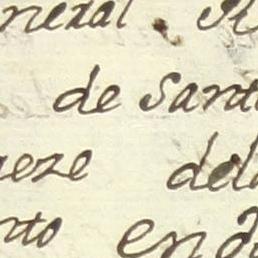 neral
de Sant
eze dela
nto en